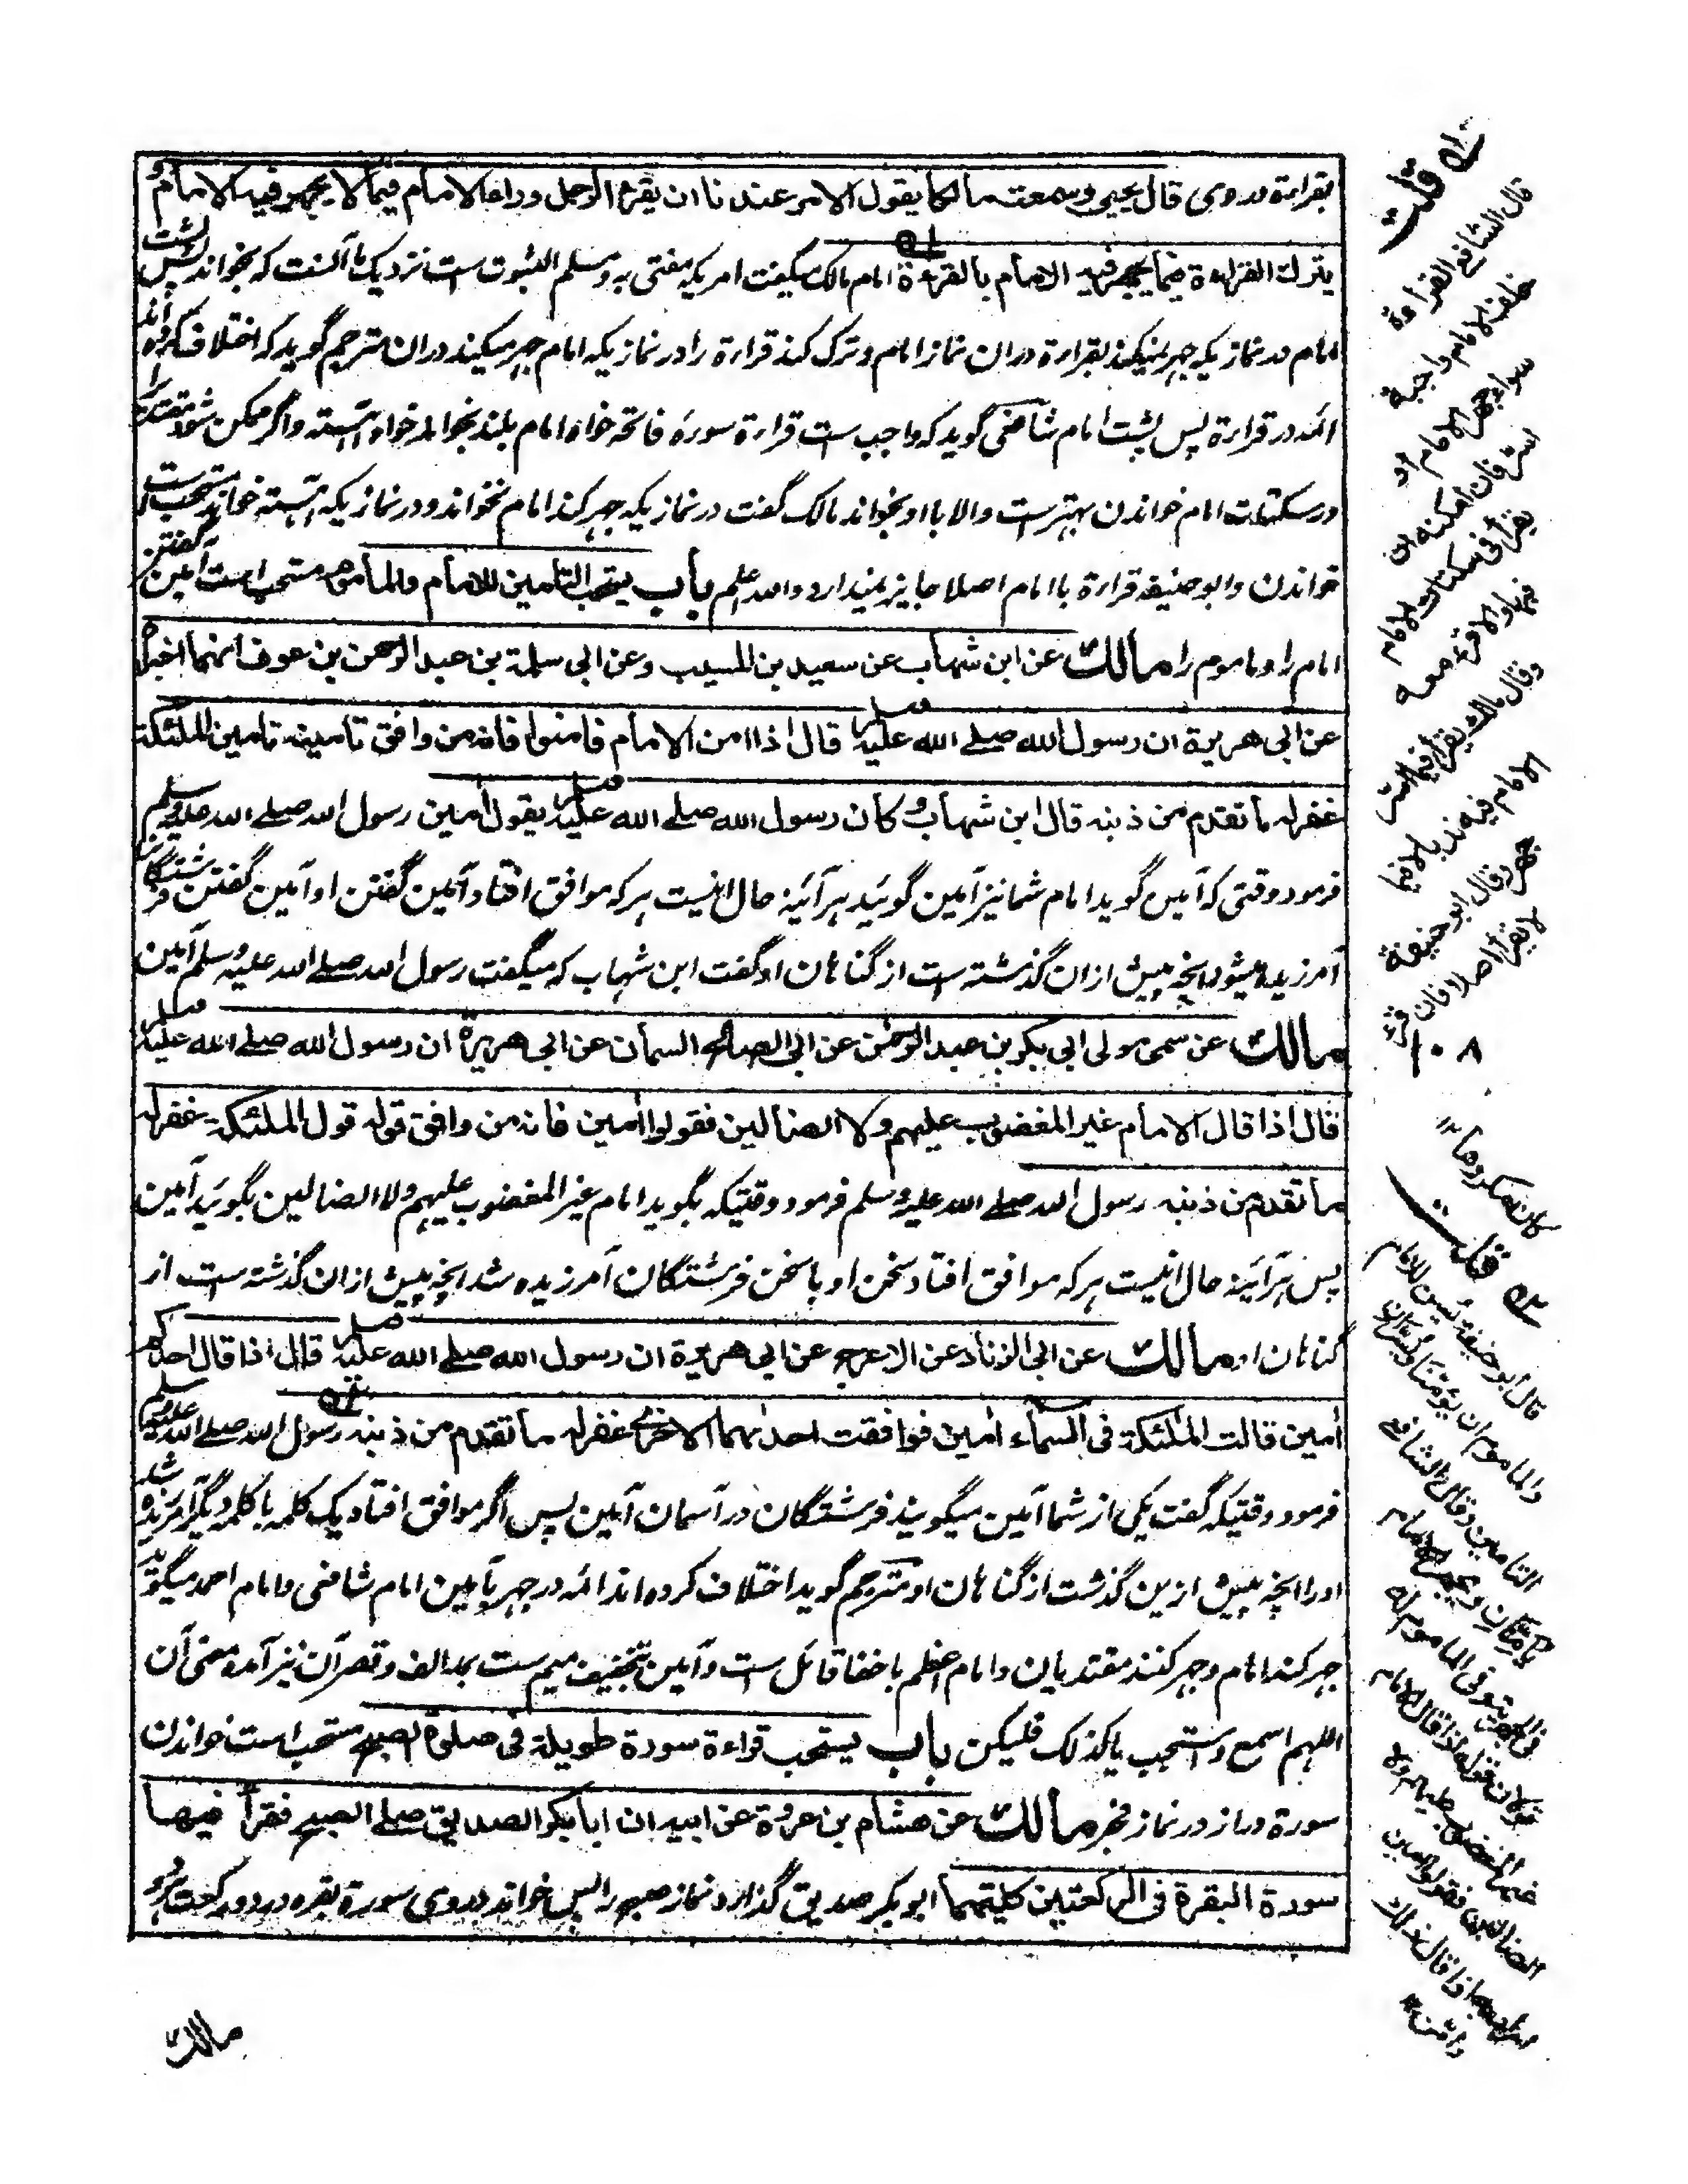 بقراءة در وی قال یحیی وسمعت مالکا یقول الامر عندنا ان یقرء الرجل وراء الامام فیما لا یجهر فیه الامام و
یترك القراءة فیما یجهر فیه الامام بالقراءة امام مالک میگفت امریکه مفتی به ومسلم الثبوت ست نزدیک ما آنست که بخواند پس پشت
امام در نمازیکه جهر نمیکند بقراءة دران نماز امام و ترک کند قراءة را در نمازیکه امام جهر میکند دران مترجم گوید که اختلاف کرده اند
ائمه در قراءة پس پشت امام شافعی گوید که واجب ست قراءة سورهٔ فاتحه خواه امام بلند بخواند خواه آهسته واگر ممکن شود مقتدی را
در سکتات امام خواندن بهترست والا با او بخواند مالک گفت در نمازیکه جهر کند امام نخواند و در نمازیکه آهسته خواند مستحب ست
خواندن وابو حنیفه قراءة با امام اصلا جایز نمیدارد والله اعلم باب یستحب التامین للامام والماموم مستحب است آمین گفتن
امام را و ماموم را مالك عن ابن شهاب عن سعید بن المسیب وعن ابی سلمة بن عبد الرحمن بن عوف انهما اخبراه
عن ابی هریرة ان رسول الله صلے الله علیه وسلم قال اذا امن الامام فامنوا فانه من وافق تامینه تامین الملئکة
غفر له ما تقدم من ذنبه قال ابن شهاب وکان رسول الله صلے الله علیه وسلم یقول آمین رسول الله صلے الله علیه وسلم
فرمود وقتی که آمین گوید امام شما نیز آمین گوئید هر آئینه حال اینست هر که موافق افتاد آمین گفتن او آمین گفتن فرشتگان
آمرزیده میشود آنچه پیش ازان گذشته ست از گناهان او گفت ابن شهاب که میگفت رسول الله صلے الله علیه وسلم آمین
مالك عن سمی مولی ابی بکر بن عبد الرحمن عن ابی الصالح السمان عن ابی هریرة ان رسول الله صلے الله علیه وسلم
قال اذا قال الامام غیر المغضوب علیهم ولا الضالین فقولوا آمین فانه من وافق قوله قول الملئکة غفر له
ما تقدم من ذنبه رسول الله صلے الله علیه وسلم فرمود وقتیکه بگوید امام غیر المغضوب علیهم ولا الضالین بگوئید آمین
پس هر آئینه حال اینست هر که موافق افتاد سخن او با سخن فرشتگان آمرزیده شد آنچه پیش ازان گذشته ست از
گناهان او مالك عن ابی الزناد عن الاعرج عن ابی هریرة ان رسول الله صلے الله علیه وسلم قال اذا قال احدکم
آمین قالت الملئکة فی السماء آمین فوافقت احدٰهما الاخری غفر له ما تقدم من ذنبه رسول الله صلے الله علیه وسلم
فرمود وقتیکه گفت یکی از شما آمین میگویند فرشتگان در آسمان آمین پس اگر موافق افتاد یک کلمه با کلمه دیگر آمرزیده شد
او را آنچه پیش ازین گذشت از گناهان او مترجم گوید اختلاف کرده اند ائمه در جهر بآمین امام شافعی و امام احمد میگوید
جهر کند امام وجهر کنند مقتدیان و امام اعظم باخفا قائل ست وآمین بتخفیف میم ست بمد الف وقصر آن نیز آمده معنی آن
اللهم اسمع واستجب یا کذلک فلیکن باب یستحب قراءة سورة طویلة فی صلوة الصبح مستحب است خواندن
سورة دراز در نماز فجر مالك عن هشام بن عروة عن ابیه ان ابا بکر الصدیق صلے الصبح فقرأ فیها
سورة البقرة فی الرکعتین کلیتهما ابو بکر صدیق گذارد نماز صبح را پس خواند در وی سورة بقره در دو رکعت هر دو
مالك
له قلت
قال الشافعی القراءة
خلف الامام واجبة
سواء جهر الامام او
اسر فان امکنه ان
یقرأ فی سکتات الامام
فبها والا قرء معه
وقال مالك یقرأ فیما اسر
الامام فیه ندبا لا فیما
جهر وقال ابو حنیفة
لا یقرأ اصلا فان قرء
۱۰۸
کان مکروها ۱۲
قلت
قال ابو حنیفة یسن للامام
والماموم ان یؤمنا ویسران
التامین وقال الشافعی
یؤمنان ویجهر الامام